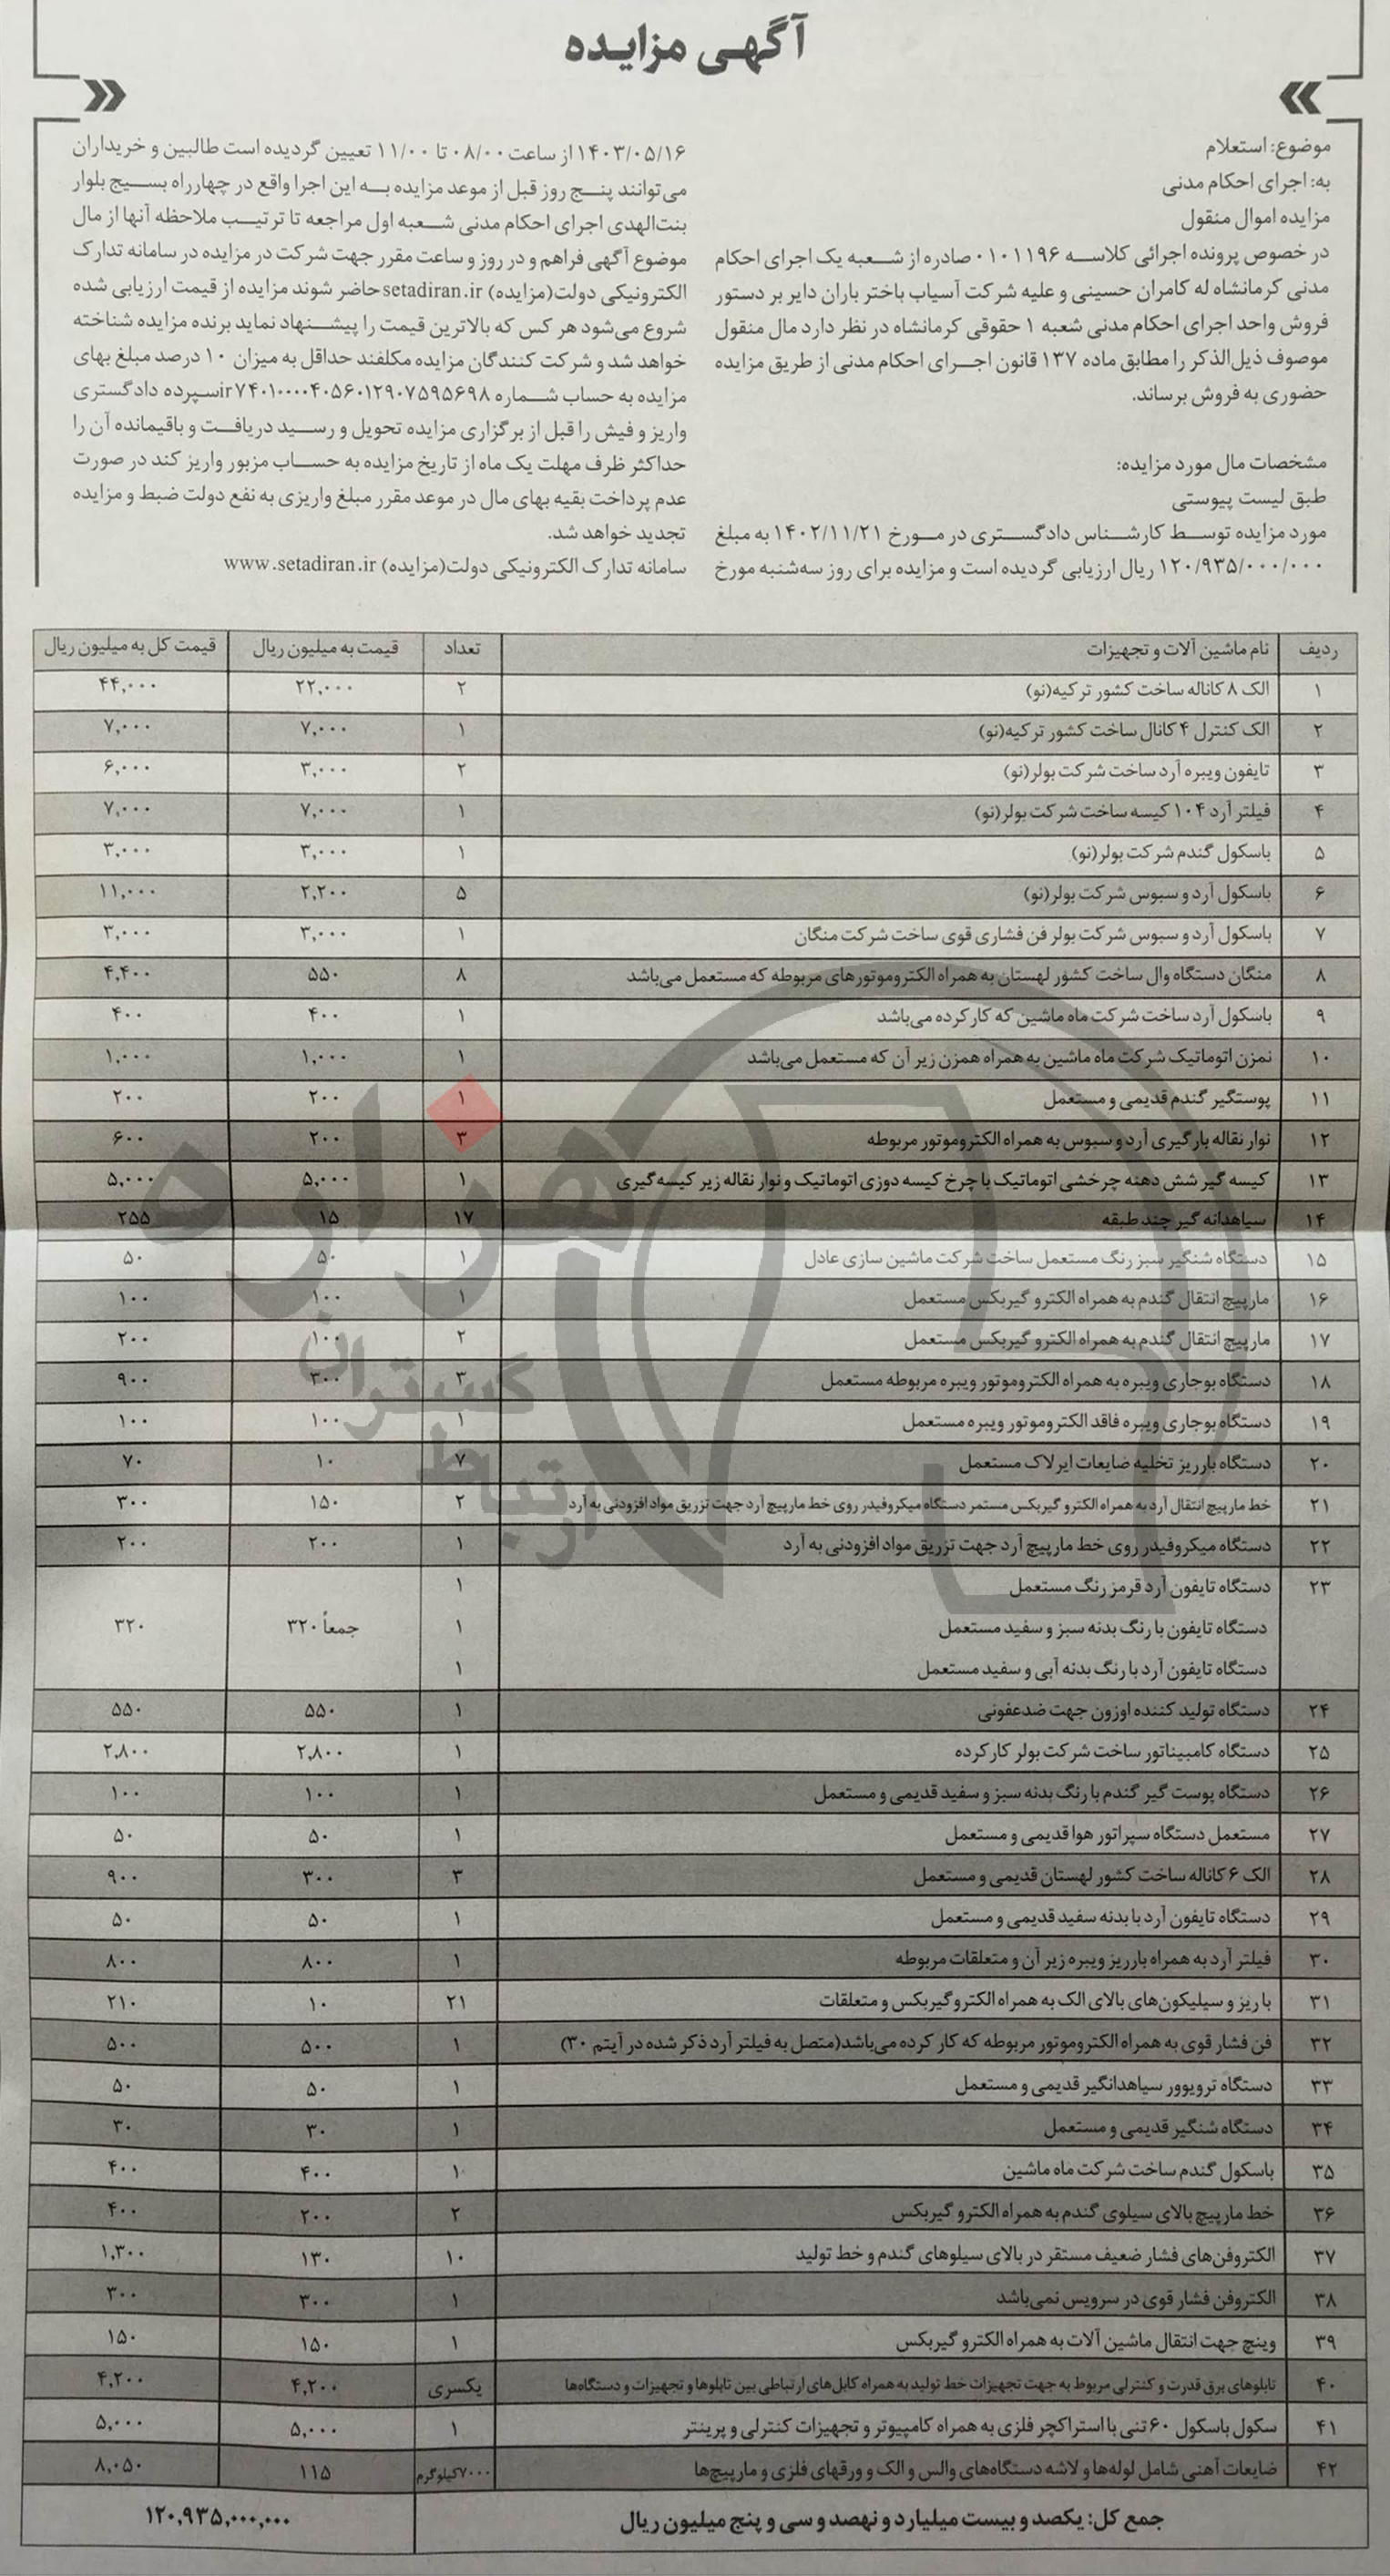 آگهی مزایده
موضوع: استعلام
به: اجرای احکام مدنی
مزایده اموال منقول
در خصوص پرونده اجرائی کلاسه ۰۱۰۱۱۹۶ صادره از شعبه یک اجرای احکام
مدنی کرمانشاه له کامران حسینی و علیه شرکت آسیاب باختر باران دایر بر دستور
فروش واحد اجرای احکام مدنی شعبه ۱ حقوقی کرمانشاه در نظر دارد مال منقول
موصوف ذیل‌الذکر را مطابق ماده ۱۳۷ قانون اجرای احکام مدنی از طریق مزایده
حضوری به فروش برساند.
مشخصات مال مورد مزایده:
طبق لیست پیوستی
مورد مزایده توسط کارشناس دادگستری در مورخ ۱۴۰۲/۱۱/۲۱ به مبلغ
۱۲۰/۹۳۵/۰۰۰/۰۰۰ ریال ارزیابی گردیده است و مزایده برای روز سه‌شنبه مورخ
۱۴۰۳/۰۵/۱۶ از ساعت ۰۸/۰۰ تا ۱۱/۰۰ تعیین گردیده است طالبین و خریداران
می‌توانند پنج روز قبل از موعد مزایده به این اجرا واقع در چهارراه بسیج بلوار
بنت‌الهدی اجرای احکام مدنی شعبه اول مراجعه تا ترتیب ملاحظه آنها از مال
موضوع آگهی فراهم و در روز و ساعت مقرر جهت شرکت در مزایده در سامانه تدارک
الکترونیکی دولت(مزایده) setadiran.ir حاضر شوند مزایده از قیمت ارزیابی شده
شروع می‌شود هر کس که بالاترین قیمت را پیشنهاد نماید برنده مزایده شناخته
خواهد شد و شرکت کنندگان مزایده مکلفند حداقل به میزان ۱۰ درصد مبلغ بهای
مزایده به حساب شماره ir۷۴۰۱۰۰۰۰۴۰۵۶۰۱۲۹۰۷۵۹۵۶۹۸ سپرده دادگستری
واریز و فیش را قبل از برگزاری مزایده تحویل و رسید دریافت و باقیمانده آن را
حداکثر ظرف مهلت یک ماه از تاریخ مزایده به حساب مزبور واریز کند در صورت
عدم پرداخت بقیه بهای مال در موعد مقرر مبلغ واریزی به نفع دولت ضبط و مزایده
تجدید خواهد شد.
سامانه تدارک الکترونیکی دولت(مزایده) www.setadiran.ir
ردیف نام ماشین آلات و تجهیزات تعداد قیمت به میلیون ریال قیمت کل به میلیون ریال
۱ الک ۸ کاناله ساخت کشور ترکیه(نو) ۲ ۲۲,۰۰۰ ۴۴,۰۰۰
۲ الک کنترل ۴ کانال ساخت کشور ترکیه(نو) ۱ ۷,۰۰۰ ۷,۰۰۰
۳ تایفون ویبره آرد ساخت شرکت بولر(نو) ۲ ۳,۰۰۰ ۶,۰۰۰
۴ فیلتر آرد ۱۰۴ کیسه ساخت شرکت بولر(نو) ۱ ۷,۰۰۰ ۷,۰۰۰
۵ باسکول گندم شرکت بولر(نو) ۱ ۳,۰۰۰ ۳,۰۰۰
۶ باسکول آرد و سبوس شرکت بولر(نو) ۵ ۲,۲۰۰ ۱۱,۰۰۰
۷ باسکول آرد و سبوس شرکت بولر فن فشاری قوی ساخت شرکت منگان ۱ ۳,۰۰۰ ۳,۰۰۰
۸ منگان دستگاه وال ساخت کشور لهستان به همراه الکتروموتورهای مربوطه که مستعمل می‌باشد ۸ ۵۵۰ ۴,۴۰۰
۹ باسکول آرد ساخت شرکت ماه ماشین که کارکرده می‌باشد ۱ ۴۰۰ ۴۰۰
۱۰ نمزن اتوماتیک شرکت ماه ماشین به همراه همزن زیر آن که مستعمل می‌باشد ۱ ۱,۰۰۰ ۱,۰۰۰
۱۱ پوستگیر گندم قدیمی و مستعمل ۱ ۲۰۰ ۲۰۰
۱۲ نوار نقاله بارگیری آرد و سبوس به همراه الکتروموتور مربوطه ۳ ۲۰۰ ۶۰۰
۱۳ کیسه گیر شش دهنه چرخشی اتوماتیک با چرخ کیسه دوزی اتوماتیک و نوار نقاله زیر کیسه گیری ۱ ۵,۰۰۰ ۵,۰۰۰
۱۴ سیاهدانه گیر چند طبقه ۱۷ ۱۵ ۲۵۵
۱۵ دستگاه شنگیر سبز رنگ مستعمل ساخت شرکت ماشین سازی عادل ۱ ۵۰ ۵۰
۱۶ مارپیچ انتقال گندم به همراه الکترو گیربکس مستعمل ۱ ۱۰۰ ۱۰۰
۱۷ مارپیچ انتقال گندم به همراه الکترو گیربکس مستعمل ۲ ۱۰۰ ۲۰۰
۱۸ دستگاه بوجاری ویبره به همراه الکتروموتور ویبره مربوطه مستعمل ۳ ۳۰۰ ۹۰۰
۱۹ دستگاه بوجاری ویبره فاقد الکتروموتور ویبره مستعمل ۱ ۱۰۰ ۱۰۰
۲۰ دستگاه بارریز تخلیه ضایعات ایرلاک مستعمل ۷ ۱۰ ۷۰
۲۱ خط مارپیچ انتقال آرد به همراه الکترو گیربکس مستمر دستگاه میکروفیدر روی خط مارپیچ آرد جهت تزریق مواد افزودنی به آرد ۲ ۱۵۰ ۳۰۰
۲۲ دستگاه میکروفیدر روی خط مارپیچ آرد جهت تزریق مواد افزودنی به آرد ۱ ۲۰۰ ۲۰۰
۲۳ دستگاه تایفون آرد قرمز رنگ مستعمل ۱
دستگاه تایفون با رنگ بدنه سبز و سفید مستعمل ۱ جمعاً ۳۲۰ ۳۲۰
دستگاه تایفون آرد با رنگ بدنه آبی و سفید مستعمل ۱
۲۴ دستگاه تولید کننده اوزون جهت ضدعفونی ۱ ۵۵۰ ۵۵۰
۲۵ دستگاه کامبیناتور ساخت شرکت بولر کارکرده ۱ ۲,۸۰۰ ۲,۸۰۰
۲۶ دستگاه پوست گیر گندم با رنگ بدنه سبز و سفید قدیمی و مستعمل ۱ ۱۰۰ ۱۰۰
۲۷ مستعمل دستگاه سپراتور هوا قدیمی و مستعمل ۱ ۵۰ ۵۰
۲۸ الک ۶ کاناله ساخت کشور لهستان قدیمی و مستعمل ۳ ۳۰۰ ۹۰۰
۲۹ دستگاه تایفون آرد با بدنه سفید قدیمی و مستعمل ۱ ۵۰ ۵۰
۳۰ فیلتر آرد به همراه بارریز ویبره زیر آن و متعلقات مربوطه ۱ ۸۰۰ ۸۰۰
۳۱ باریز و سیلیکون‌های بالای الک به همراه الکتروگیربکس و متعلقات ۲۱ ۱۰ ۲۱۰
۳۲ فن فشار قوی به همراه الکتروموتور مربوطه که کار کرده می‌باشد(متصل به فیلتر آرد ذکر شده در آیتم ۳۰) ۱ ۵۰۰ ۵۰۰
۳۳ دستگاه ترویوور سیاهدانگیر قدیمی و مستعمل ۱ ۵۰ ۵۰
۳۴ دستگاه شنگیر قدیمی و مستعمل ۱ ۳۰ ۳۰
۳۵ باسکول گندم ساخت شرکت ماه ماشین ۱ ۴۰۰ ۴۰۰
۳۶ خط مارپیچ بالای سیلوی گندم به همراه الکترو گیربکس ۲ ۲۰۰ ۴۰۰
۳۷ الکتروفن‌های فشار ضعیف مستقر در بالای سیلوهای گندم و خط تولید ۱۰ ۱۳۰ ۱,۳۰۰
۳۸ الکتروفن فشار قوی در سرویس نمی‌باشد ۱ ۳۰۰ ۳۰۰
۳۹ وینچ جهت انتقال ماشین آلات به همراه الکترو گیربکس ۱ ۱۵۰ ۱۵۰
۴۰ تابلوهای برق قدرت و کنترلی مربوط به جهت تجهیزات خط تولید به همراه کابل‌های ارتباطی بین تابلوها و تجهیزات و دستگاه‌ها یکسری ۴,۲۰۰ ۴,۲۰۰
۴۱ سکول باسکول ۶۰ تنی با استراکچر فلزی به همراه کامپیوتر و تجهیزات کنترلی و پرینتر ۱ ۵,۰۰۰ ۵,۰۰۰
۴۲ ضایعات آهنی شامل لوله‌ها و لاشه دستگاه‌های والس و الک و ورقهای فلزی و مارپیچ‌ها ۷۰۰۰۰کیلوگرم ۱۱۵ ۸,۰۵۰
جمع کل: یکصد و بیست میلیارد و نهصد و سی و پنج میلیون ریال ۱۲۰,۹۳۵,۰۰۰,۰۰۰
هزاره
گستران
ارتباط